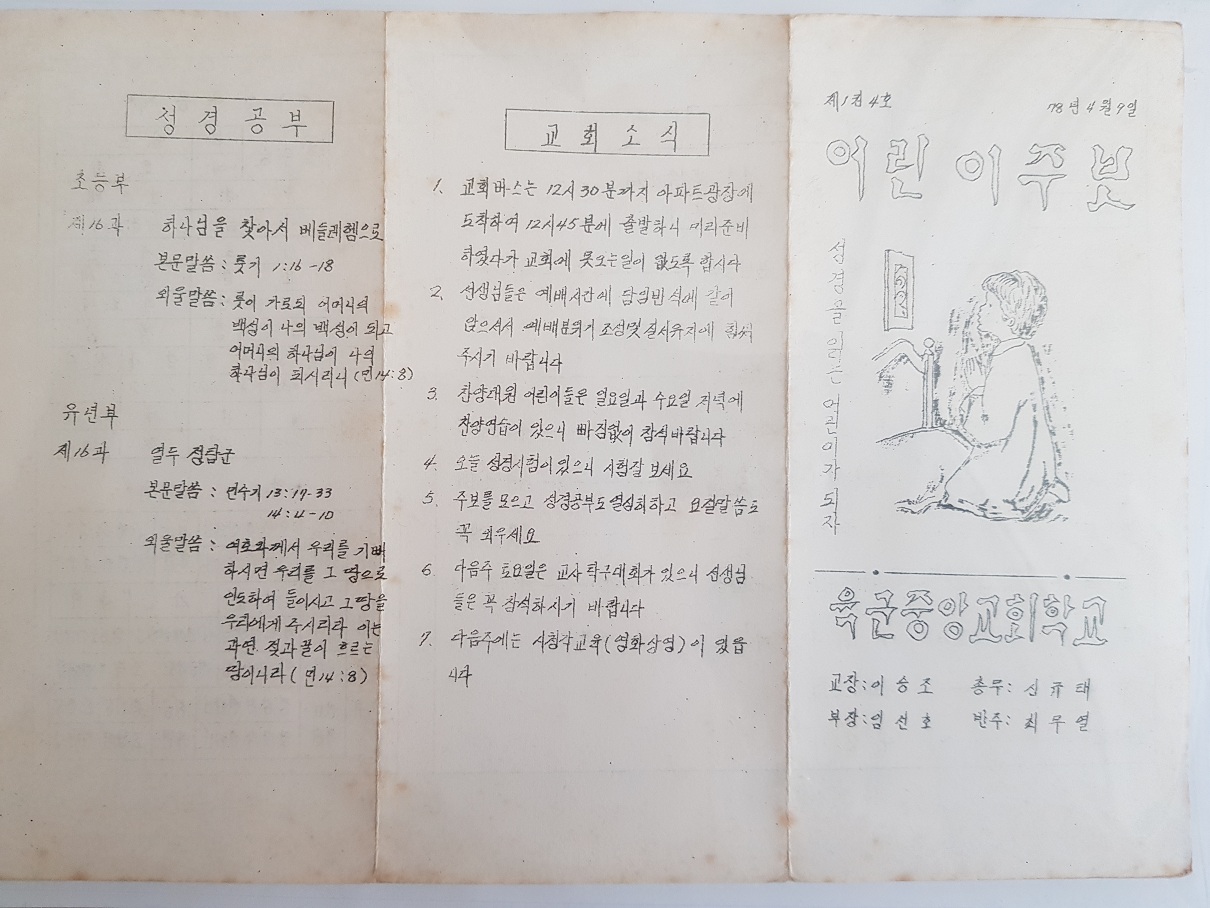 성경공부
초등부
제16과 하나님을 찾아서 베들레헴으로
본문말씀 : 룻기 1:16-18
외울말씀 : 룻이 가로되 어머니의
백성이 나의 백성이 되고
어머니의 하나님이 나의
하나님이 되시리니 (민14:8)
유년부
제16과 열두 정탐군
본문말씀 : 민수기 13:17-33
14:4-10
외울말씀 : 여호와께서 우리를 기뻐
하시면 우리를 그 땅으로
인도하여 들이시고 그 땅을
우리에게 주시리라 이는
과연 젖과 꿀이 흐르는
땅이니라 (민14:8)
교회소식
1. 교회버스는 12시 30분까지 아파트광장에
도착하여 12시45분에 출발하니 미리준비
하였다가 교회에 못오는일이 없도록 합시다
2. 선생님들은 예배시간에 담임반 석에 같이
앉으셔서 예배분위기 조성및 질서유지에 힘써
주시기 바랍니다
3. 찬양대원 어린이들은 일요일과 수요일 저녁에
찬양연습이 있으니 빠짐없이 참석바랍니다
4. 오늘 성경시험이 있으니 시험잘 보세요
5. 주보를 모으고 성경공부도 열심히하고 요절말씀도
꼭 외우세요
6. 다음주 토요일은 교사 탁구대회가 있으니 선생님
들은 꼭 참석하시기 바랍니다
7. 다음주에는 시청각교육(영화상영)이 있읍
니다
제1권 4호 78년 4월 9일
어린이주보
성경을 읽는 어린이가 되자
육군중앙교회학교
교장:이승조 총무:신규태
부장:임선호 반주:최무열